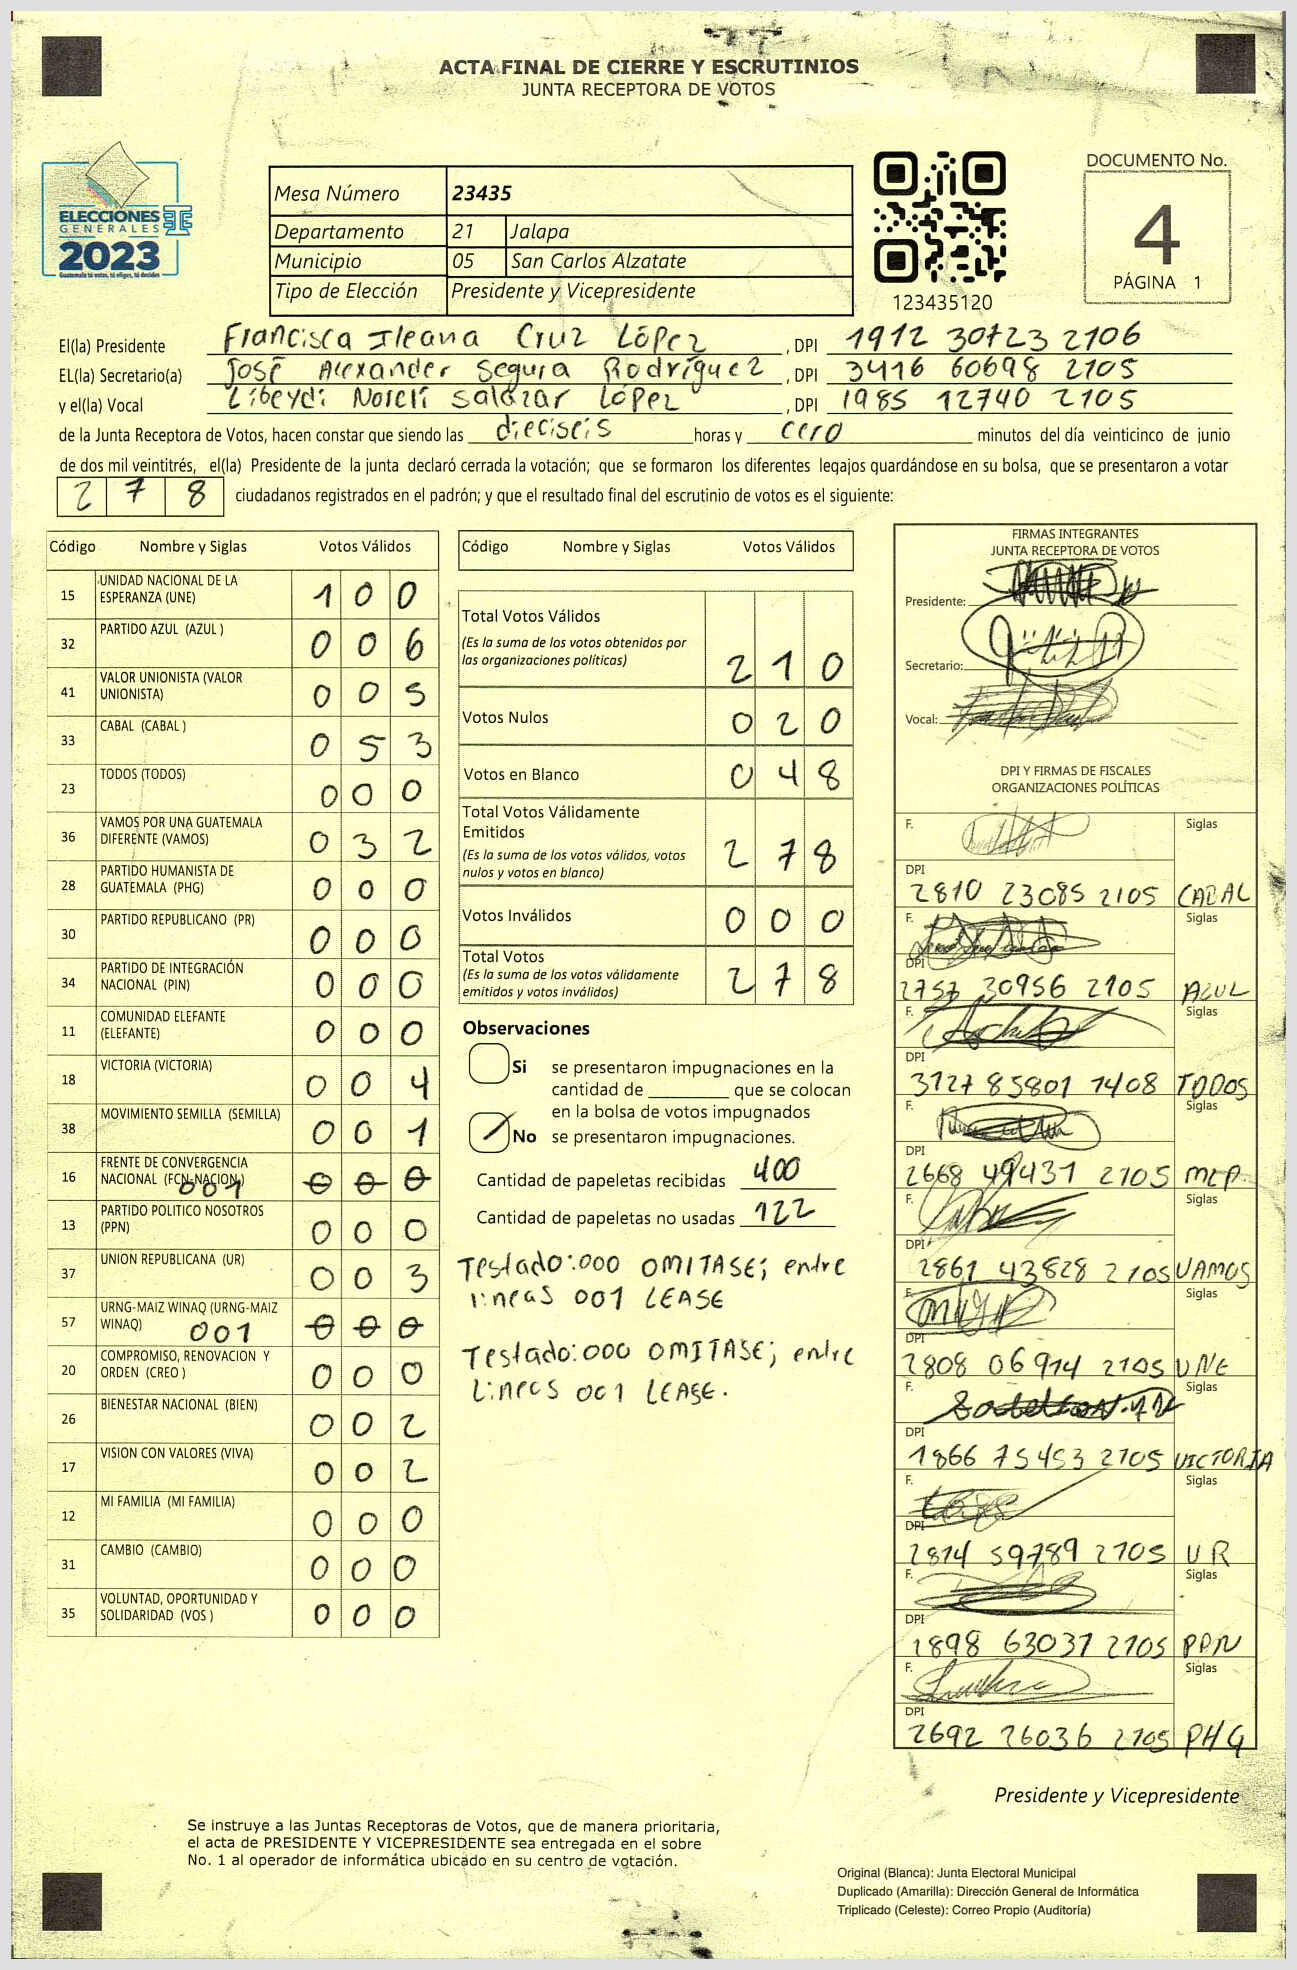 ACTA FINAL DE CIERRE Y ESCRUTINIOS
JUNTA RECEPTORA DE VOTOS
ELECCIONES
GENERALES
2023
Guatemala tú votas, tú eliges, tú decides
Mesa Número 23435
Departamento 21 Jalapa
Municipio 05 San Carlos Alzatate
Tipo de Elección Presidente y Vicepresidente
123435120
DOCUMENTO No.
4
PÁGINA 1
El(la) Presidente Francisca Ileana Cruz López , DPI 1912 30723 2106
EL(la) Secretario(a) José Alexander Segura Rodríguez , DPI 3416 60698 2105
y el(la) Vocal Libeydi Noreli Salazar López , DPI 1985 12740 2105
de la Junta Receptora de Votos, hacen constar que siendo las dieciseis horas y cero minutos del día veinticinco de junio
de dos mil veintitrés, el(la) Presidente de la junta declaró cerrada la votación; que se formaron los diferentes legajos guardándose en su bolsa, que se presentaron a votar
2 7 8 ciudadanos registrados en el padrón; y que el resultado final del escrutinio de votos es el siguiente:
Código Nombre y Siglas Votos Válidos
15 UNIDAD NACIONAL DE LA ESPERANZA (UNE) 1 0 0
32 PARTIDO AZUL (AZUL ) 0 0 6
41 VALOR UNIONISTA (VALOR UNIONISTA) 0 0 5
33 CABAL (CABAL ) 0 5 3
23 TODOS (TODOS) 0 0 0
36 VAMOS POR UNA GUATEMALA DIFERENTE (VAMOS) 0 3 2
28 PARTIDO HUMANISTA DE GUATEMALA (PHG) 0 0 0
30 PARTIDO REPUBLICANO (PR) 0 0 0
34 PARTIDO DE INTEGRACIÓN NACIONAL (PIN) 0 0 0
11 COMUNIDAD ELEFANTE (ELEFANTE) 0 0 0
18 VICTORIA (VICTORIA) 0 0 4
38 MOVIMIENTO SEMILLA (SEMILLA) 0 0 1
16 FRENTE DE CONVERGENCIA NACIONAL (FCN-NACION) 001 0 0 0
13 PARTIDO POLITICO NOSOTROS (PPN) 0 0 0
37 UNION REPUBLICANA (UR) 0 0 3
57 URNG-MAIZ WINAQ (URNG-MAIZ WINAQ) 001 0 0 0
20 COMPROMISO, RENOVACION Y ORDEN (CREO ) 0 0 0
26 BIENESTAR NACIONAL (BIEN) 0 0 2
17 VISION CON VALORES (VIVA) 0 0 2
12 MI FAMILIA (MI FAMILIA) 0 0 0
31 CAMBIO (CAMBIO) 0 0 0
35 VOLUNTAD, OPORTUNIDAD Y SOLIDARIDAD (VOS ) 0 0 0
Código Nombre y Siglas Votos Válidos
Total Votos Válidos
(Es la suma de los votos obtenidos por
las organizaciones políticas) 2 1 0
Votos Nulos 0 2 0
Votos en Blanco 0 4 8
Total Votos Válidamente
Emitidos
(Es la suma de los votos válidos, votos
nulos y votos en blanco) 2 7 8
Votos Inválidos 0 0 0
Total Votos
(Es la suma de los votos válidamente
emitidos y votos inválidos) 2 7 8
Observaciones
Si se presentaron impugnaciones en la
cantidad de ________ que se colocan
en la bolsa de votos impugnados
No se presentaron impugnaciones.
Cantidad de papeletas recibidas 400
Cantidad de papeletas no usadas 122
Testado:000 OMITASE; entre
lineas 001 LEASE
Testado:000 OMITASE; entre
Lineas 001 LEASE.
FIRMAS INTEGRANTES
JUNTA RECEPTORA DE VOTOS
Presidente:
Secretario:
Vocal:
DPI Y FIRMAS DE FISCALES
ORGANIZACIONES POLÍTICAS
F. Siglas
DPI
2810 23085 2105 CABAL
F. Siglas
DPI
2757 30956 2105 AZUL
F. Siglas
DPI
3127 85801 1408 TODOS
F. Siglas
DPI
2668 49431 2105 MLP
F. Siglas
DPI
2861 43828 2105 VAMOS
F. Siglas
DPI
2808 06914 2105 UNE
F. Siglas
DPI
1866 75453 2105 VICTORIA
F. Siglas
DPI
2814 59789 2105 UR
F. Siglas
DPI
1898 63031 2105 PPN
F. Siglas
DPI
2692 26036 2105 PHG
Presidente y Vicepresidente
Se instruye a las Juntas Receptoras de Votos, que de manera prioritaria,
el acta de PRESIDENTE Y VICEPRESIDENTE sea entregada en el sobre
No. 1 al operador de informática ubicado en su centro de votación.
Original (Blanca): Junta Electoral Municipal
Duplicado (Amarilla): Dirección General de Informática
Triplicado (Celeste): Correo Propio (Auditoría)